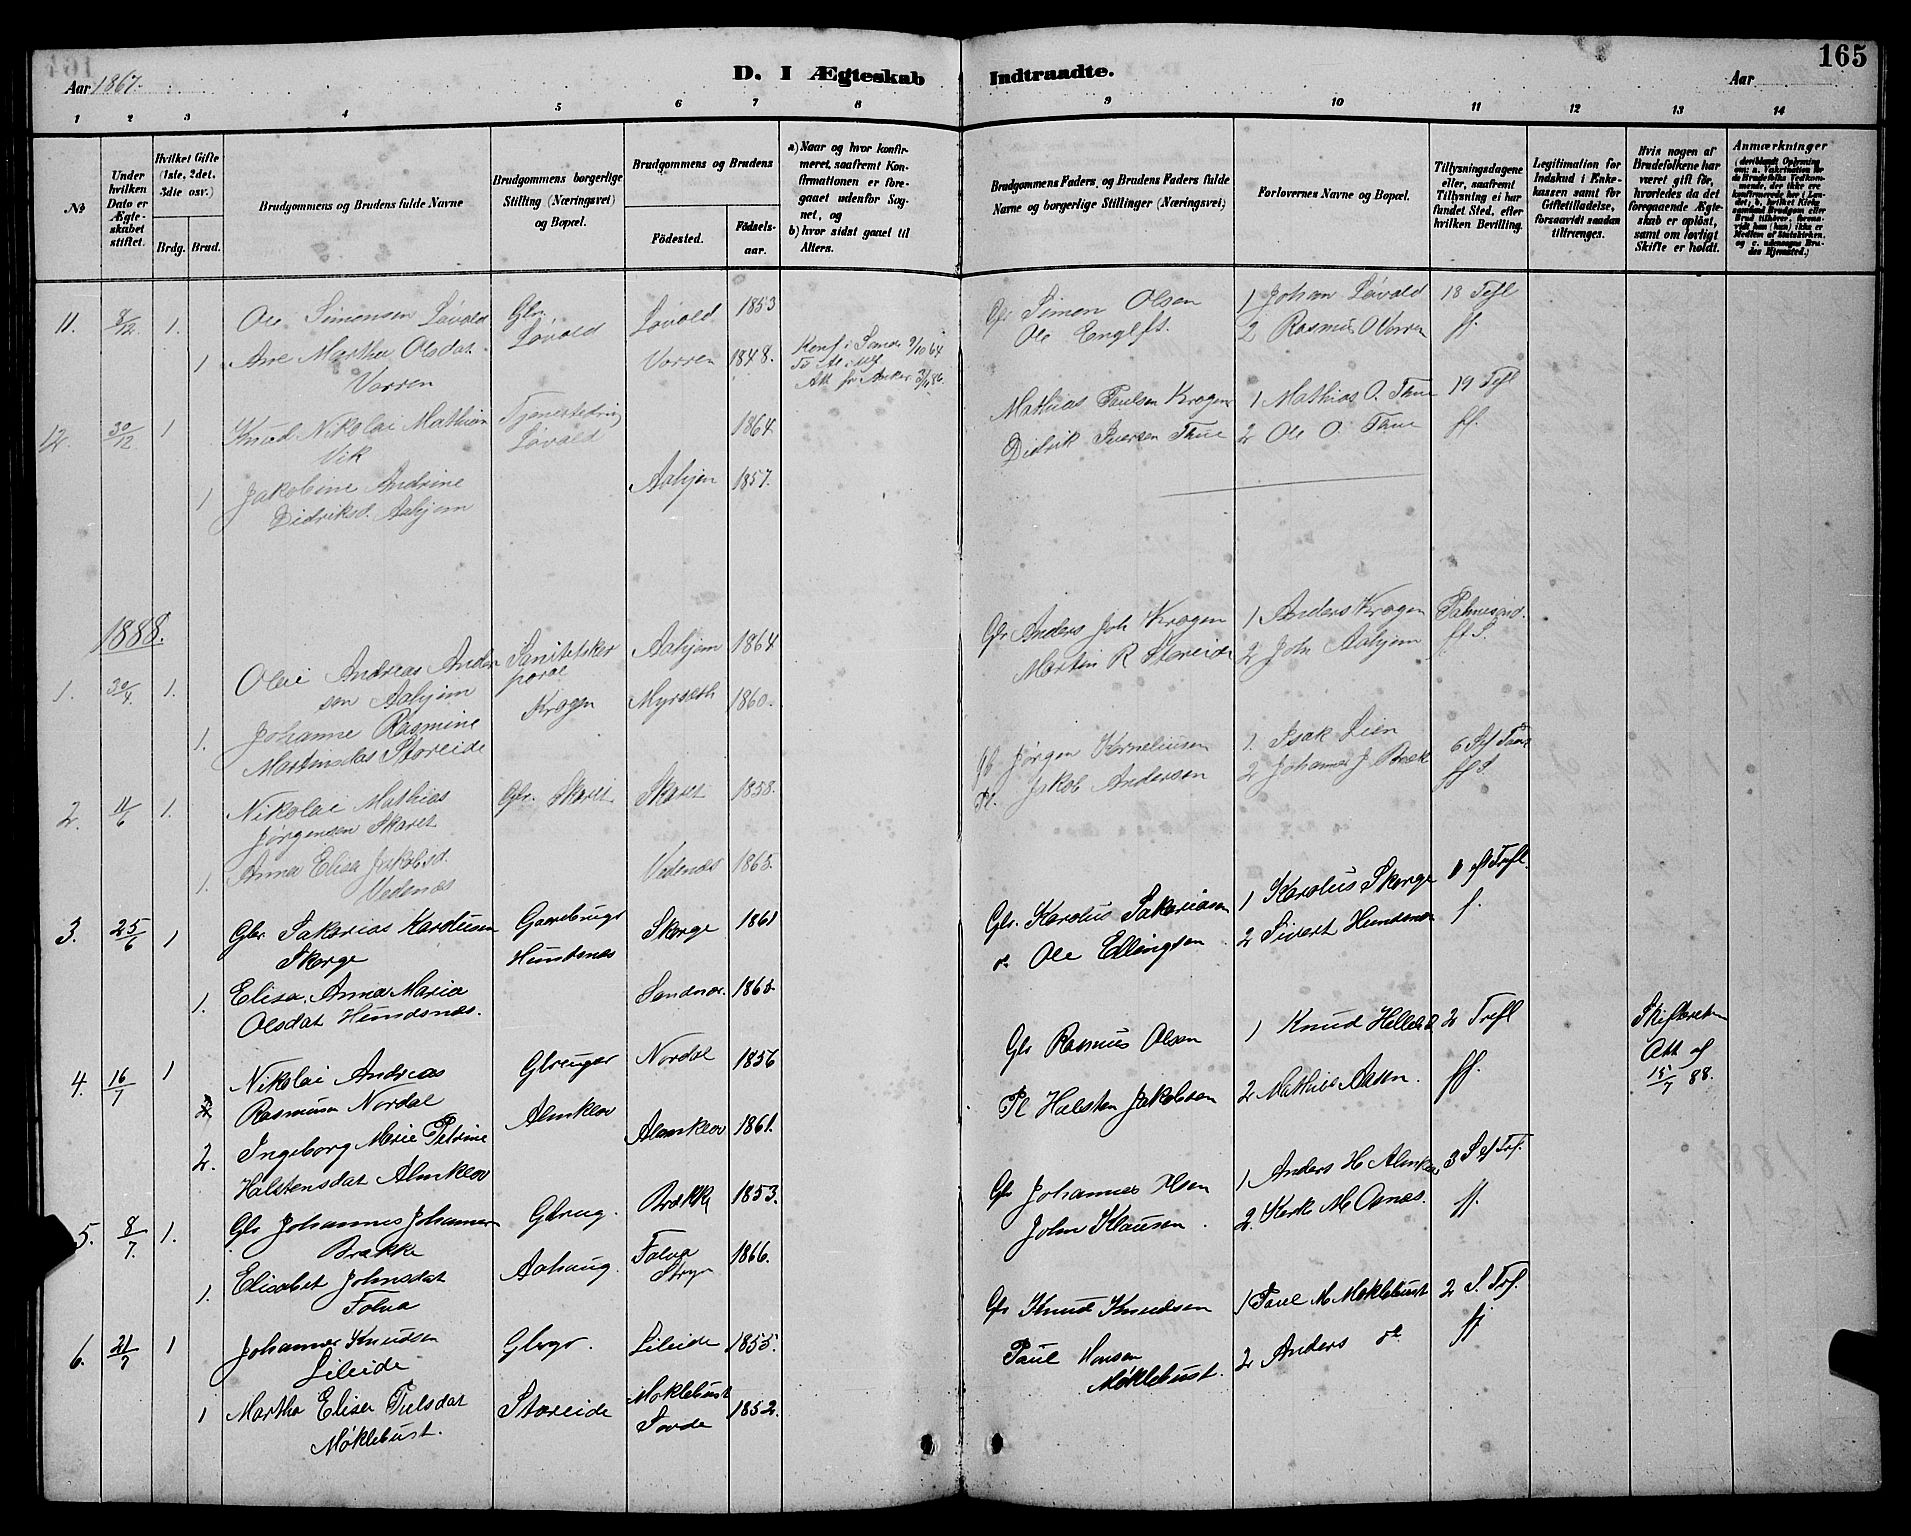 165
Aar 1867.
D. I Ægteskab Indtraadte.
Aar
1 2 3 4 5 6 7 8 9 10 11 12 13 14
№
Under hvilken Dato er Ægteskabet stiftet.
Hvilket Gifte (1ste, 2det, 3die osv.)
Brdg. Brud.
Brudgommens og Brudens fulde Navne
Brudgommens borgerlige Stilling (Næringsvei) og Bopæl.
Brudgommens og Brudens
Fødested.
Fødselsaar.
a) Naar og hvor konfirmeret, saafremt Konfirmationen er foregaaet udenfor Sognet, og
b) hvor sidst gaaet til Alters.
Brudgommens Faders, og Brudens Faders fulde Navne og borgerlige Stillinger (Næringsvei)
Forlovernes Navne og Bopæl.
Tillysningsdagene eller, saafremt Tillysning ei har fundet Sted, efter hvilken Bevilling.
Legitimation for Indskud i Enkekassen samt for Giftetilladelse, forsaavidt saadan tiltrænges.
Hvis nogen af Brudefolkene har været gift før, hvorledes da det foregaaende Ægteskab er opløst, samt om lovligt Skifte er holdt.
Anmærkninger
11. 8/12 1. Ole Simonsen Løvold Gbr. Løvold Løvold 1853 Gbr Simon Olsen 1 Johan Løvold 18 Tefl
1 Ane Martha Olsdat. Vorren Vorren 1848. Konf i Sande 9/10 64 Ole Englft. 2 Rasmus O Vorren ff.
12 30/12 1 Knud Nikolai Mathisen Vik Tjenestedreng Løvold 1864 Mathias Paulsen Kragen 1 Mathias O. Thue 19 Tefl
1 Jakobine Andrine Didriksd. Aahjem Aahjem 1857. Didrik Iversen Thue 2 Ole O. Thue ff.
1888.
1. 30/4 1. Olai Andreas Andersen Aahjem Sanitetskorporal Kragen Aahjem 1864 Gbr Anders Joh Kragen 1 Anders Kragen Palmesønd.
1. Johanne Rasmine Martinsdat Storeide Myrseth 1860. Martin R Storeide 2 John Aahjem ff S.
2. 11/6 1. Nikolai Mathias Jørgensen Skaret Gbr. Skaret Skaret 1858. Jørgen Korneliusen 1. Isak Lien
1. Anna Elisa Jakobsd. Vedenæs Vedenæs 1863. Pl. Jakob Andersen 2 Johannes J Brek
3. 25/6 1 Gbr. Sakarias Karolusen Skorge Gaardbruger Hundsnes Skorge 1861 Gbr. Karolus Sakariasen 1 Karolus Skorge
1. Elisa. Anna Maria Olsdat Hundsnæs. 1863. Ole Ellingsen 2 Sivert Hundsnes f.
4. 16/7 1 Nikolai Andreas Rasmusen Nordal Gbruger Almklov Nordal 1856 Gbr Rasmus Olsen 1 Knud 2 Trefl Skifteretten Att af 15/7 88.
2. Ingeborg Marie Petrine Halstensdat Almklov Almklov 1861. Pl Halsten Jakobsen 2 Mathias Aasen. ff.
5. 8/7 1. Gbr Johannes Johannesen Brække Gbrug. Aahaug. Brække 1853. Gbr Johannes Olsen 1 Anders H Almklov 3 S ef Tref.
1. Elisabet Johnsdat Folva Folva Stryn 1866. John Klausen 2. ff.
6. 21/7 1 Johannes Knudsen Lileide Gbrgr. Storeide Lileide 1855. Gbr Knud Knudsen 1 Paul M Møklebust 2 S. Tref.
1 Martha Elisa Pulsdat Møklebust. Møklebust Søvde 1852. Paul Hansen Møklebust. 2 Anders ff